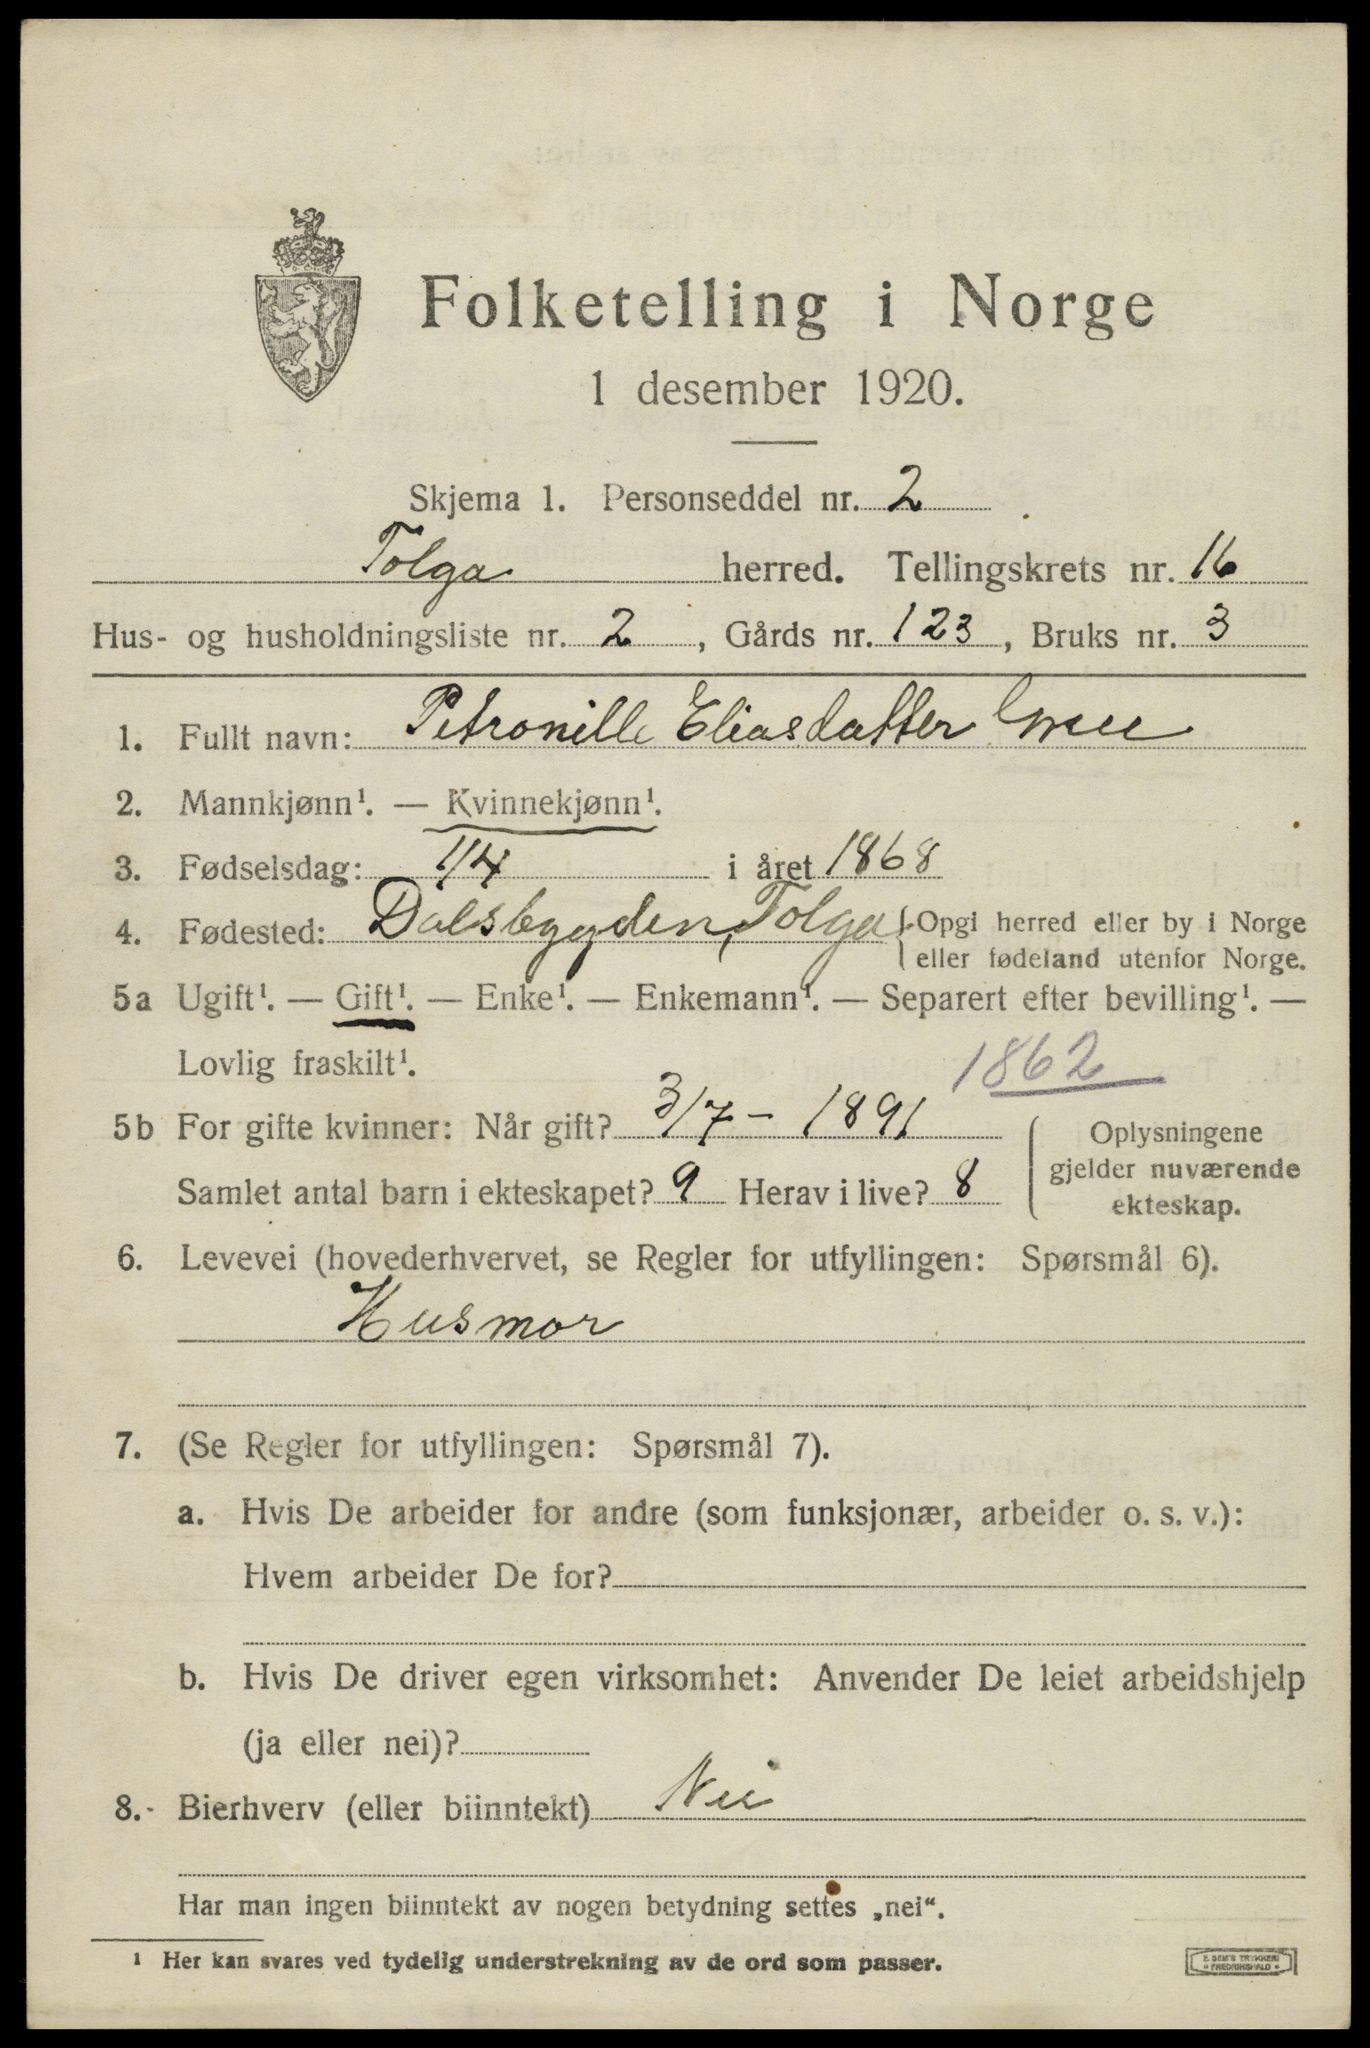 Folketelling i Norge
1 desember 1920.
Skjema 1. Personseddel nr. 2
Tolga herred. Tellingskrets nr. 16
Hus- og husholdningsliste nr. 2, Gårds nr. 123, Bruks nr. 3
1. Fullt navn: Petronille Eliasdatter
2. Mannkjønn¹. — Kvinnekjønn¹.
3. Fødselsdag: 1/4 i året 1868
4. Fødested: Dalsbygden, Tolga { Opgi herred eller by i Norge
eller fødeland utenfor Norge.
5a Ugift¹. — Gift¹. — Enke¹. — Enkemann¹. — Separert efter bevilling¹. —
Lovlig fraskilt¹. 1862
5b For gifte kvinner: Når gift? 3/7 - 1891
Samlet antal barn i ekteskapet? 9 Herav i live? 8
{ Oplysningene
gjelder nuværende
ekteskap.
6. Levevei (hovederhvervet, se Regler for utfyllingen: Spørsmål 6).
Husmor
7. (Se Regler for utfyllingen: Spørsmål 7).
a. Hvis De arbeider for andre (som funksjonær, arbeider o. s. v.):
Hvem arbeider De for?
b. Hvis De driver egen virksomhet: Anvender De leiet arbeidshjelp
(ja eller nei)?
8. Bierhverv (eller biinntekt) Nei
Har man ingen biinntekt av nogen betydning settes „nei“.
¹ Her kan svares ved tydelig understrekning av de ord som passer.
E. SEM'S TRYKKERI
FREDRIKSHALD